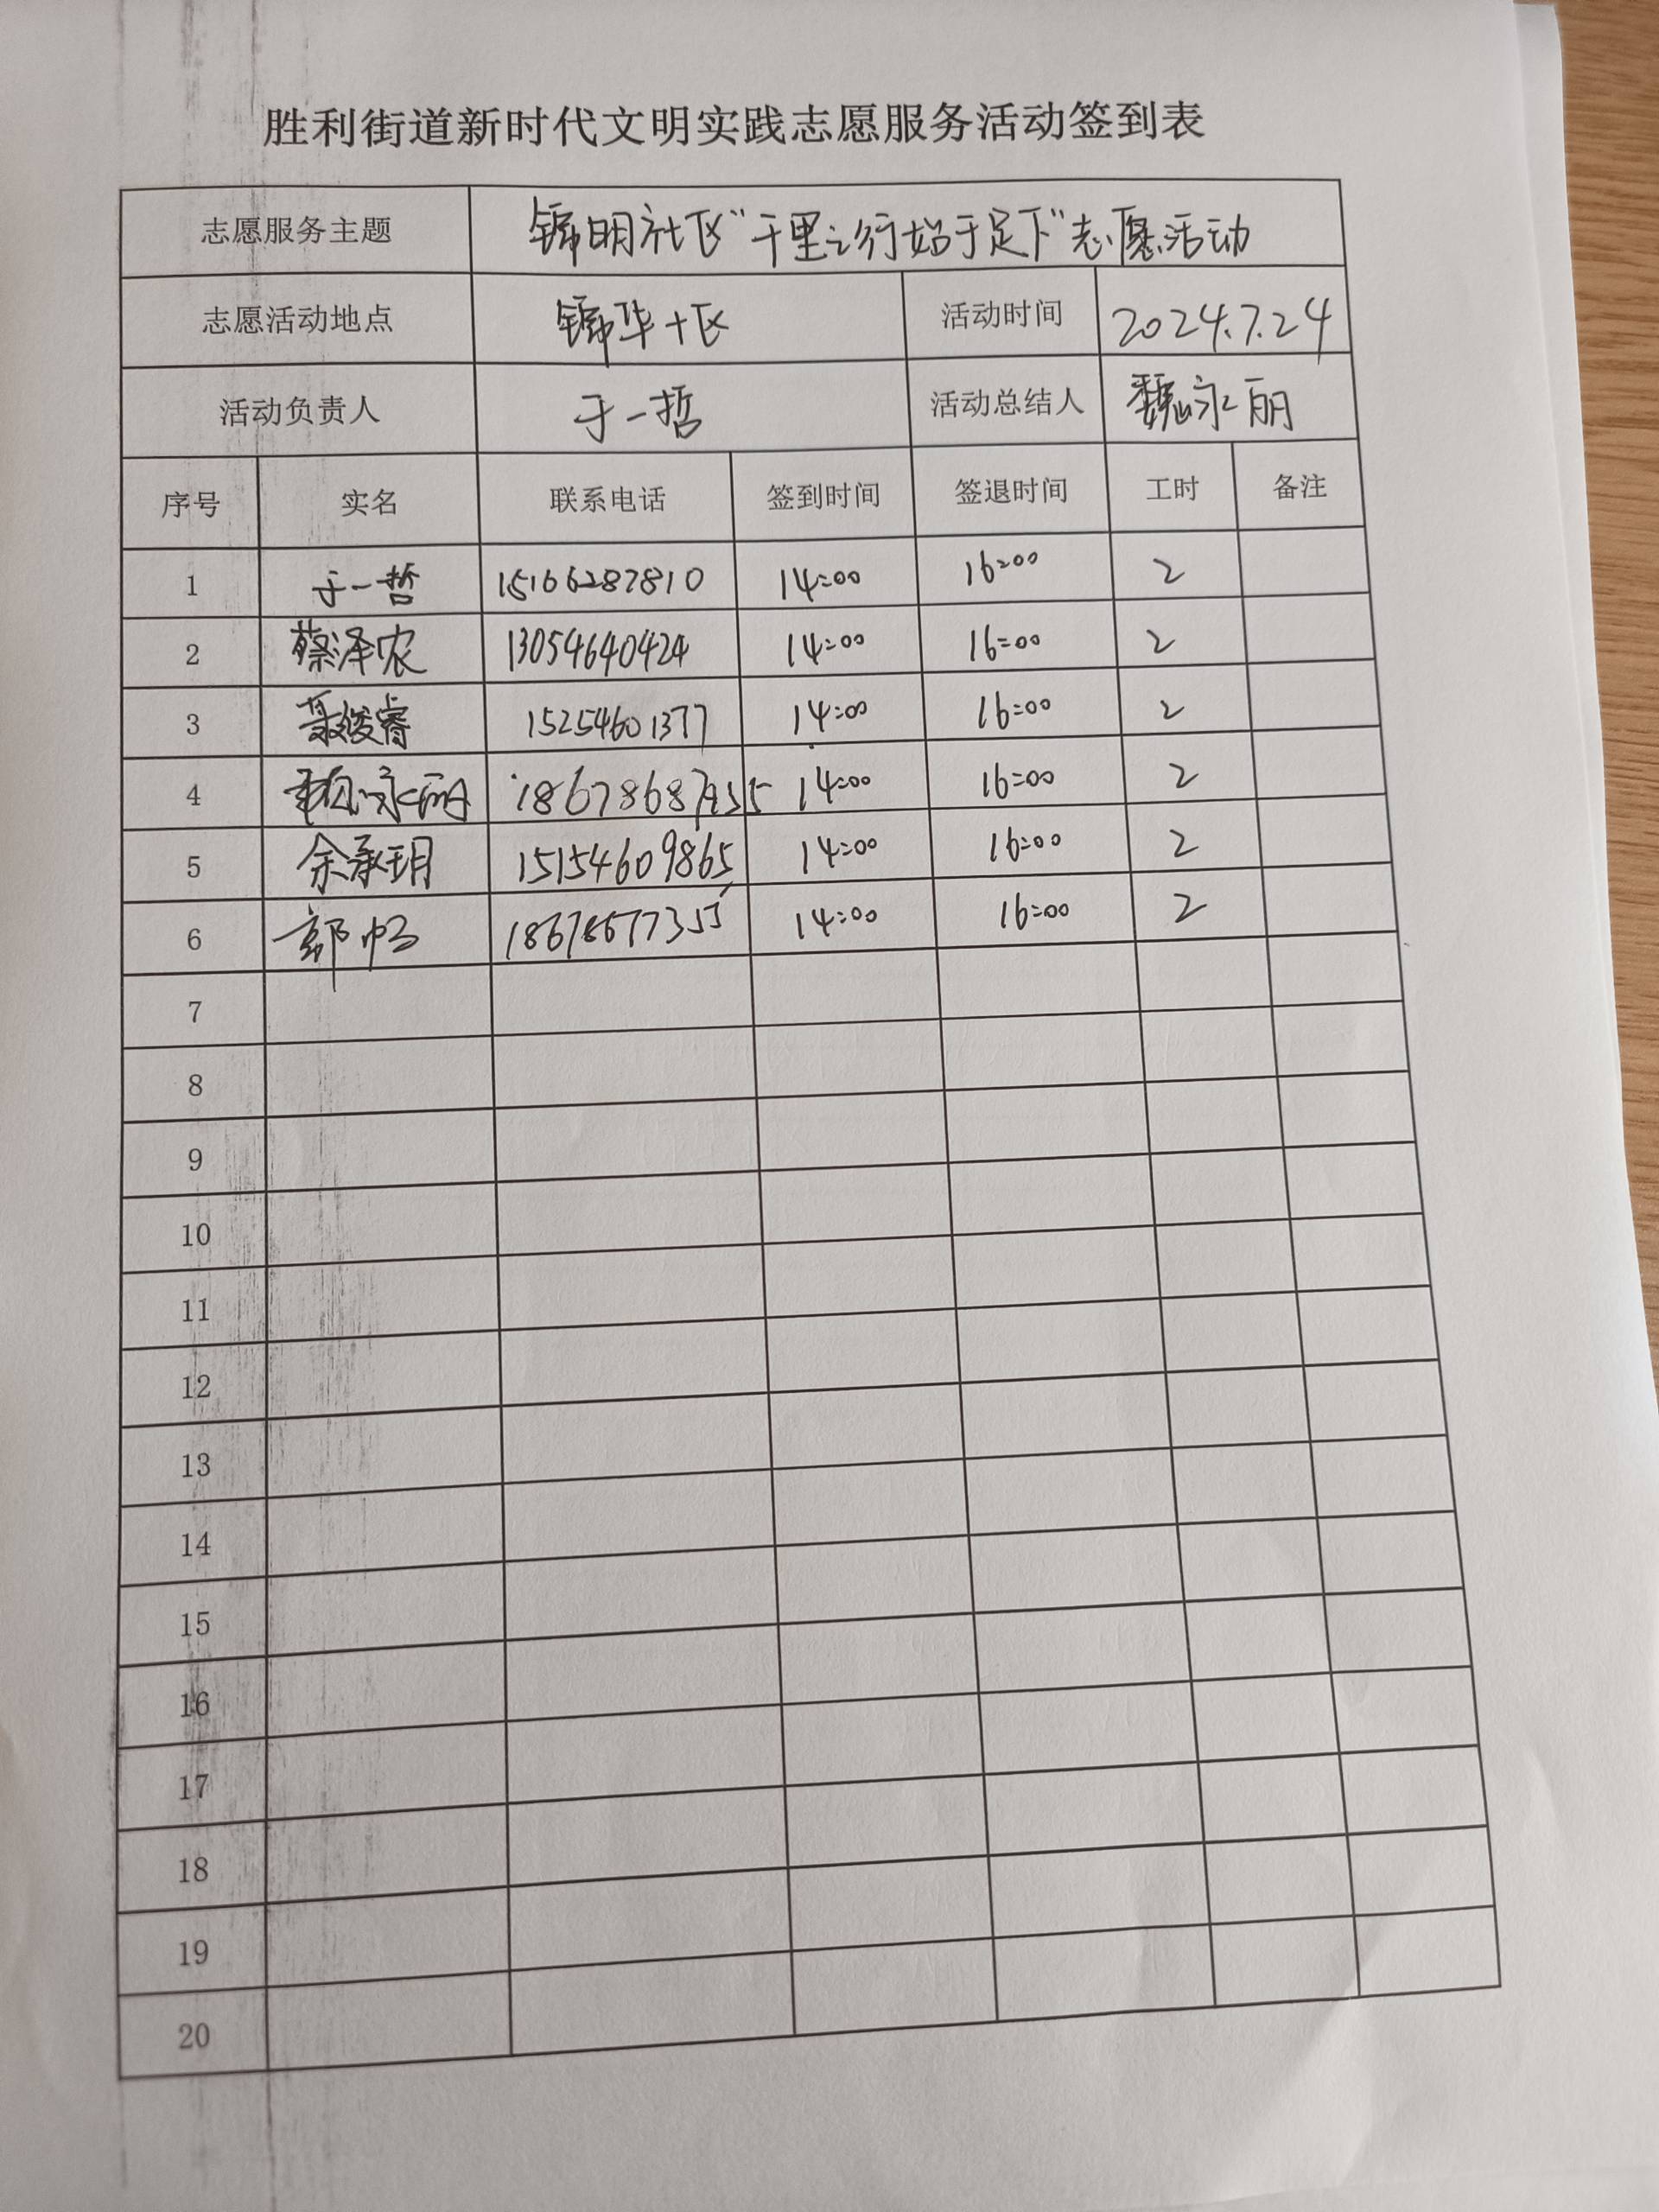 胜利街道新时代文明实践志愿服务活动签到表
志愿服务主题 锦明社区“千里之行始于足下”志愿活动
志愿活动地点 锦华十区 活动时间 2024.7.24
活动负责人 于一哲 活动总结人 魏永丽
序号 实名 联系电话 签到时间 签退时间 工时 备注
1 于一哲 15166287810 14:00 16:00 2
2 蔡泽农 13054640424 14:00 16:00 2
3 聂俊睿 15254601377 14:00 16:00 2
4 魏永丽 14:00 16:00 2
5 余承玥 15154609865 14:00 16:00 2
6 郭畅 14:00 16:00 2
7
8
9
10
11
12
13
14
15
16
17
18
19
20